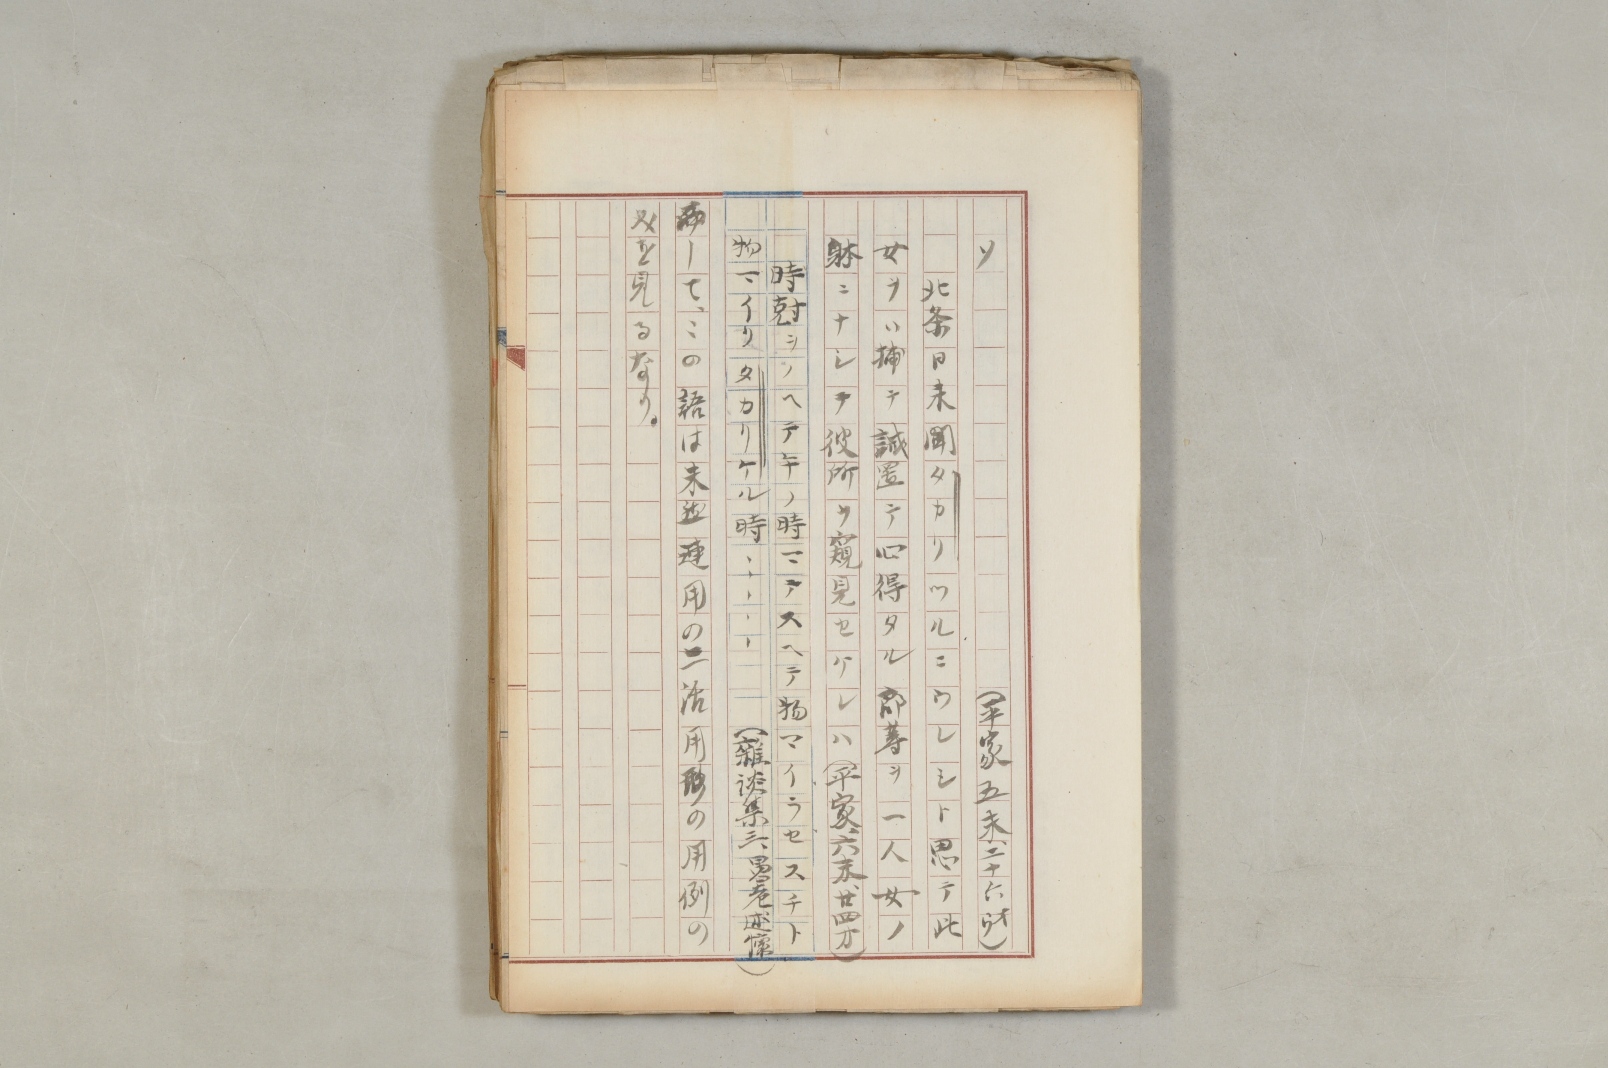 ソ　　　　　　　　　　（平家五末、二十六ウ）
北条日来聞タカリツルニウレシト思テ此
女ヲハ捕テ誡置テ心得タル郎等ヲ一人女ノ
躰ニナシテ彼所ヲ窺見セケレハ（平家六末廿四オ）
時尅ヲソヘテ午ノ時マテスヘテ物マイラセスチト
物マイリタカリケル時、、、、（雜談集三、愚老述懷）
而して、この語は未然連用の二活用形の用例の
みを見るなり。